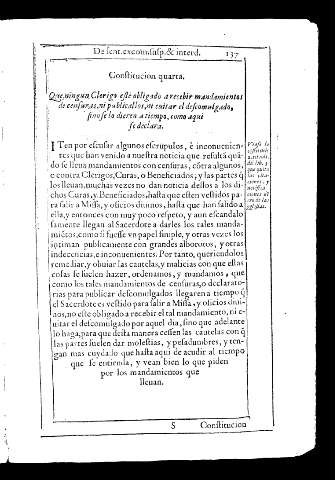 De sent. excom. susp. & interd. 137
Constitucion quarta.
Que ningun Clerigo esté obligado a recebir mandamientos
de censuras, ni publicallos, ni euitar el descomulgado,
sino se lo dieren a tiempo, como aqui
se declara.
ITen por escusar algunos escrupulos, è inconuenien-
tes que han venido a nuestra noticia que resultã quã
do se lleuã mandamientos con censuras, cõtra algunos,
o contra Clerigos, Curas, o Beneficiados, y las partes q̃
los lleuan, muchas vezes no dan noticia dellos a los di-
chos Curas, y Beneficiados, hasta que estèn vestidos pa-
ra salir a Missa, y oficios diuinos, hasta que han salido a
ella, y entonces con muy poco respeto, y aun escandalo
samente llegan al Sacerdote a darles los tales manda-
miẽtos, como si fuesse vn papel simple, y otras vezes los
intiman publicamente con grandes alborotos, y otras
indecencias, e inconuenientes. Por tanto, queriendolo
remediar, y obuiar las cautelas, y malicias con que estas
cosas se suelen hazer, ordenamos, y mandamos, que
como los tales mandamientos de censuras, o declarato-
rias para publicar descomulgados llegaren a tiempo q̃
el Sacerdote estè vestido para salir a Missa, y oficios diui-
nos, no estè obligado a recebir el tal mandamiento, ni e-
uitar el descomulgado por aquel dia, sino que adelante
lo haga, para que desta manera cessen las cautelas con q̃
las partes suelen dar molestias, y pesadumbres, y ten-
gan mas cuydado que hasta aqui de acudir al tiempo
que se entienda, y vean bien lo que piden
por los mandamientos que
lleuan.
S Constitucion